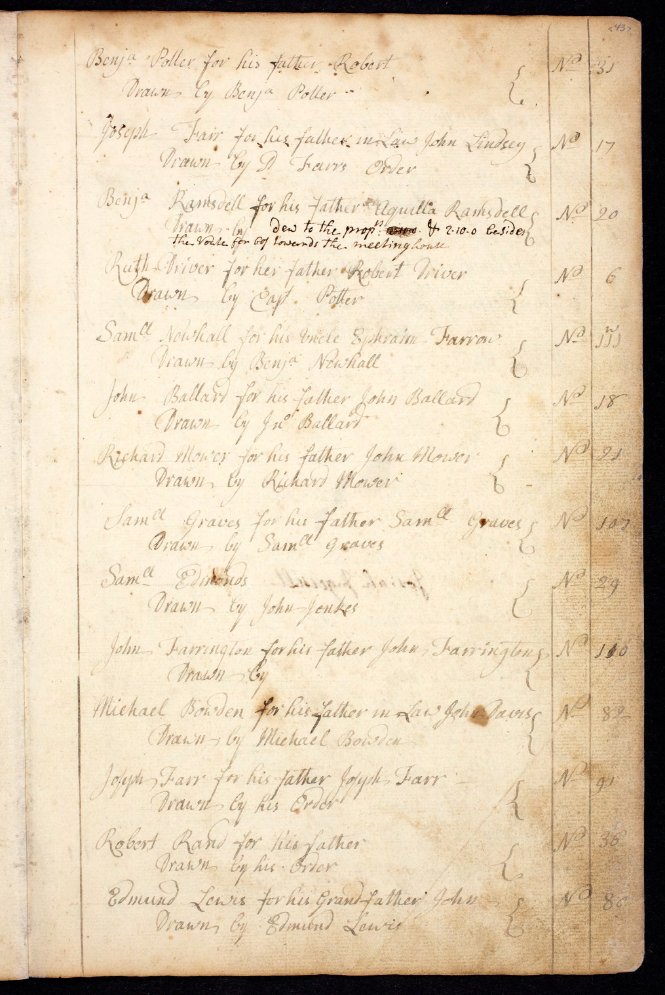 Benja Potter for his father Robert No 31
Drawn by Benja Potter
Joseph Farr for his father in Law John Lindsey No 17
Drawn by D Farrs Order
Benja Ramsdell for his father Aquilla Ramsdell No 20
Drawn by dew to the prop & 2-10-0 besides
the Vote for towerds the meeting house
Ruth Driver for her father Robert Driver No 6
Drawn by Capt Potter
Samll Newhall for his Uncle Ephraim Farrow No 111
Drawn by Benja Newhall
John Ballard for his father John Ballard No 18
Drawn by Jno Ballard
Richard Mower for his father John Mower No 21
Drawn by Richard Mower
Samll Graves for his father Samll Graves No 107
Drawn by Samll Graves
Samll Edmonds No 29
Drawn by John Jenkes
John Farrington for his father John Farrington No 110
Drawn by
Michael Bowden for his father in Law John Davis No 82
Drawn by Michael Bowden
Joseph Farr for his father Joseph Farr No 91
Drawn by his Order
Robert Rand for his father No 36
Drawn by his Order
Edmund Lewis for his Grandfather John No 80
Drawn by Edmund Lewis